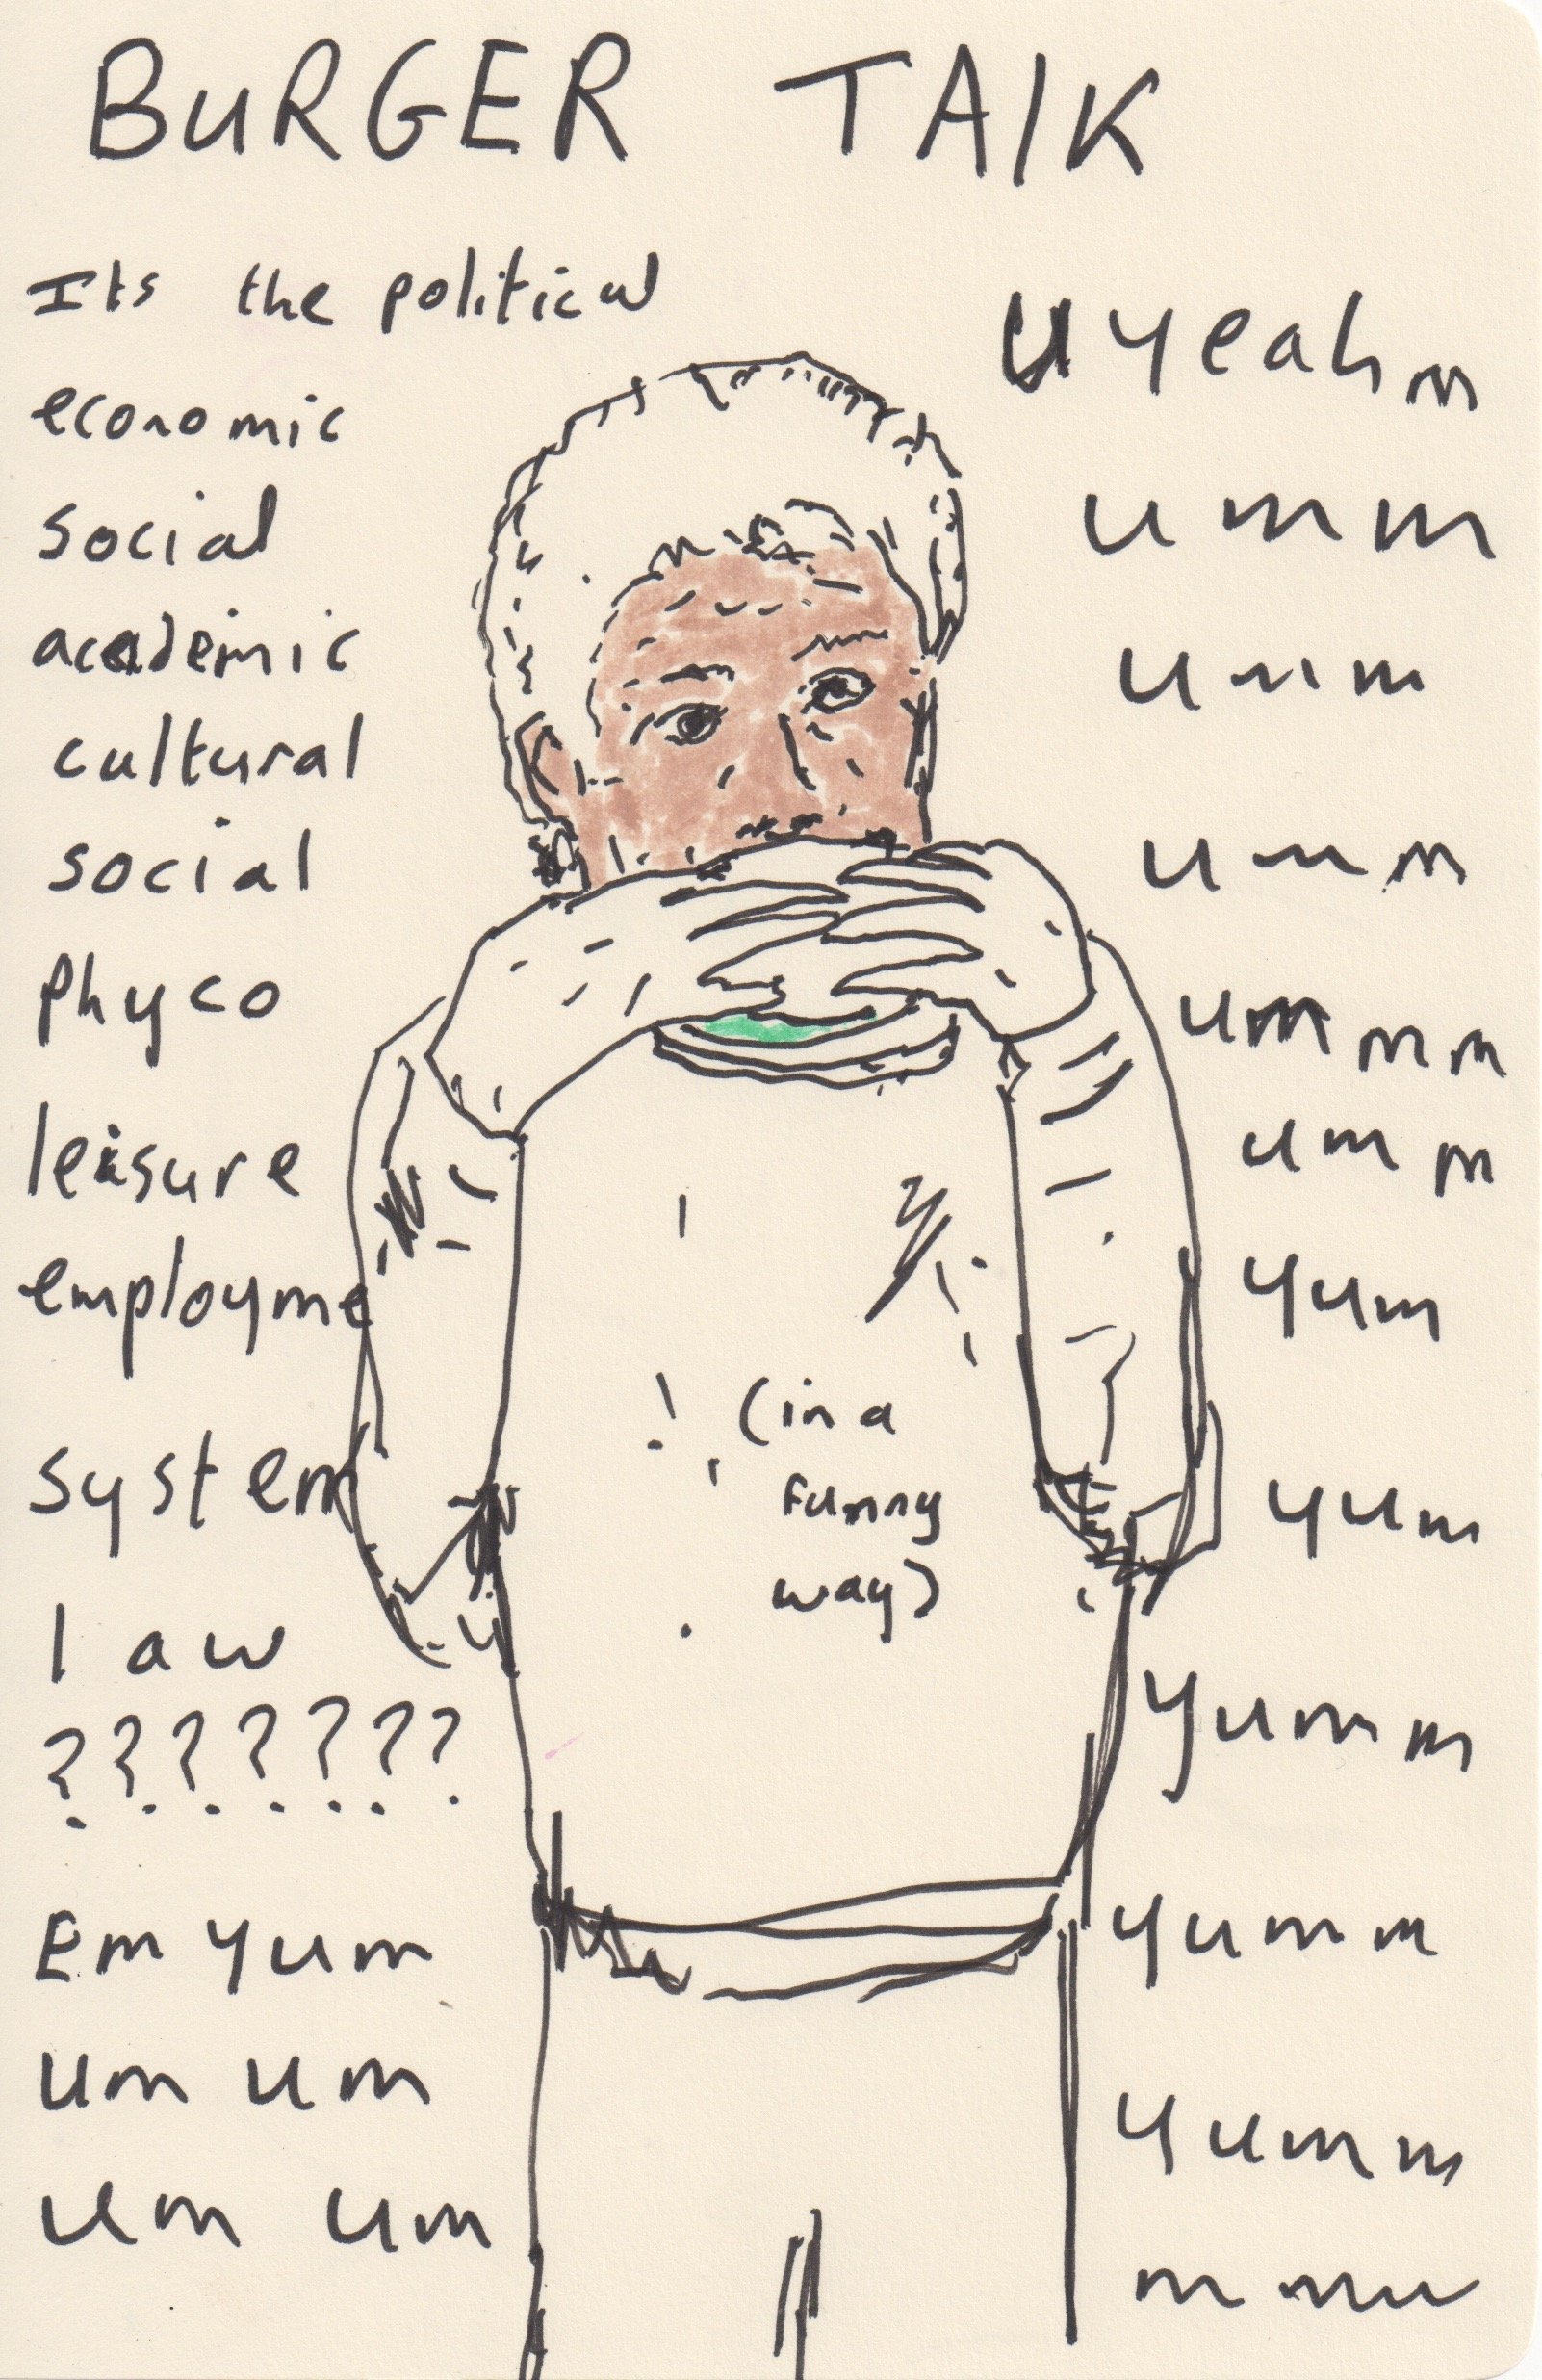 BURGER TALK
Its the political
economic
social
academic
cultural
social
phyco
leisure
employme
system
law
???????
Em yum
um um
um um
(in a
funny
way)
u yeah m
umm
umm
umm
ummmm
umm
yum
yum
yumm
yumm
yumm